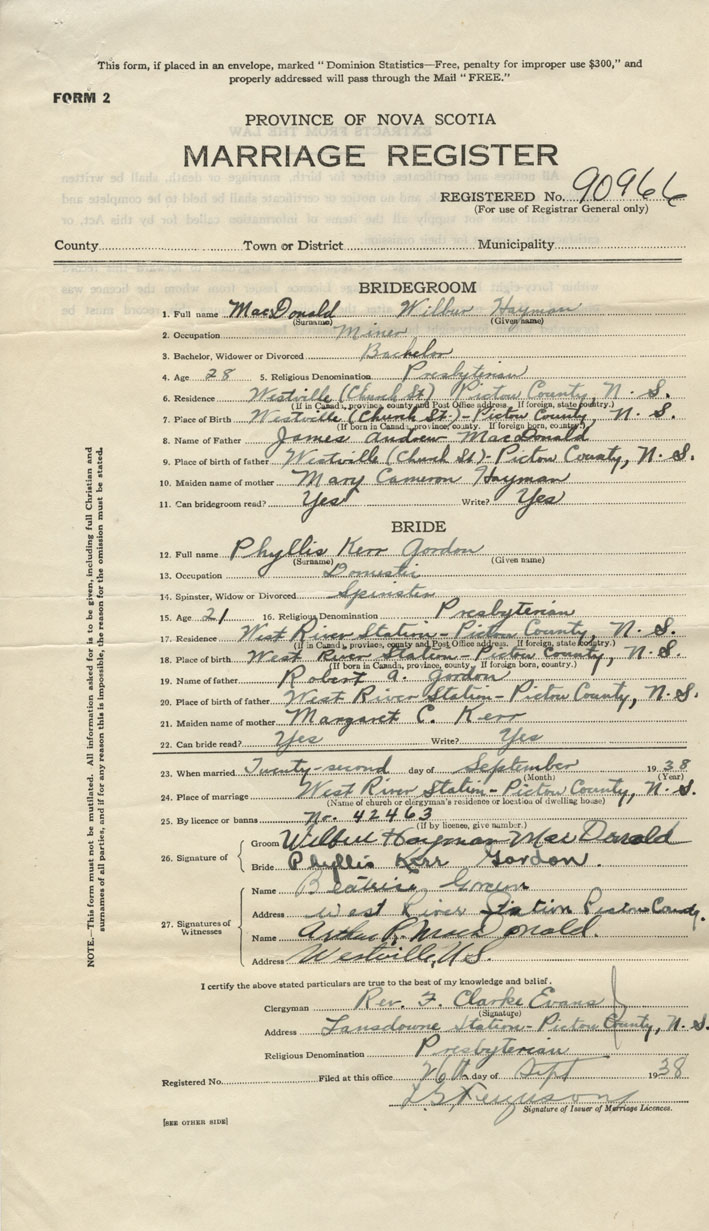 This form, if placed in an envelope, marked "Dominion Statistics—Free, penalty for improper use $300," and
properly addressed will pass through the Mail "FREE."
FORM 2
PROVINCE OF NOVA SCOTIA
MARRIAGE REGISTER
REGISTERED No. 90966
(For use of Registrar General only)
County Town or District Municipality
BRIDEGROOM
1. Full name MacDonald Wilbur Hayman
(Surname) (Given name)
2. Occupation Miner
3. Bachelor, Widower or Divorced Bachelor
4. Age 28 5. Religious Denomination Presbyterian
6. Residence Westville (Church St) Pictou County, N. S.
(If in Canada, province, county and Post Office address. If foreign, state country.)
7. Place of Birth Westville (Church St.)-Pictou County, N. S.
(If born in Canada, province, county. If foreign born, country.)
8. Name of Father James Andrew MacDonald
9. Place of birth of father Westville (Church St)-Pictou County, N. S.
10. Maiden name of mother Mary Cameron Hayman
11. Can bridegroom read? Yes Write? Yes
BRIDE
12. Full name Phyllis Kerr Gordon
(Surname) (Given name)
13. Occupation Domestic
14. Spinster, Widow or Divorced Spinster
15. Age 21 16. Religious Denomination Presbyterian
17. Residence West River Station-Pictou County, N. S.
(If in Canada, province, county and Post Office address. If foreign, state country.)
18. Place of birth West River Station-Pictou County, N. S.
(If born in Canada, province, county. If foreign born, country.)
19. Name of father Robert A. Gordon
20. Place of birth of father West River Station-Pictou County, N. S.
21. Maiden name of mother Margaret C. Kerr
22. Can bride read? Yes Write? Yes
23. When married Twenty-second day of September 1938
(Month) (Year)
24. Place of marriage West River Station-Pictou County, N. S.
(Name of church or clergyman's residence or location of dwelling house)
25. By licence or banns No. 42463
(If by licence, give number.)
26. Signature of Groom Wilbur Hayman MacDonald
Bride Phyllis Kerr Gordon.
27. Signatures of Witnesses Name Beatrice
Address West River Station Pictou County.
Name Arthur R. MacDonald.
Address Westville, N.S.
I certify the above stated particulars are true to the best of my knowledge and belief.
Clergyman Rev. F. Clarke Evans
(Signature)
Address Lansdowne Station-Pictou County, N. S.
Religious Denomination Presbyterian
Registered No. Filed at this office 26th day of Sept 1938
Ferguson
Signature of Issuer of Marriage Licences.
[SEE OTHER SIDE]
NOTE.—This form must not be mutilated. All information asked for is to be given, including full Christian and
surnames of all parties, and if for any reason this is impossible, the reason for the omission must be stated.